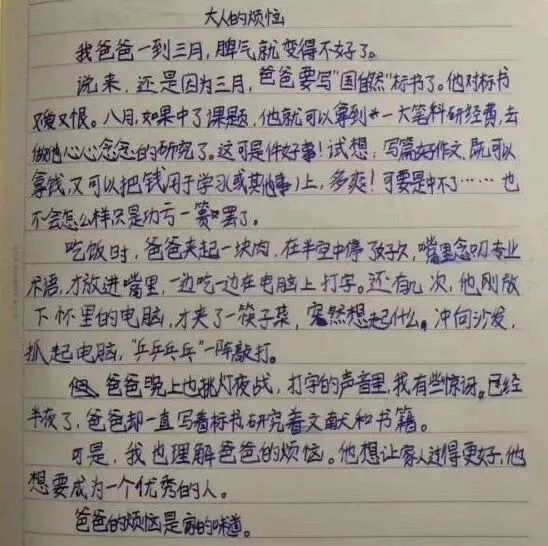 大人的烦恼
我爸爸一到三月,脾气就变得不好了。
说来,还是因为三月,爸爸要写“国自然”标书了。他对标书
又爱又恨。八月,如果中了课题,他就可以拿到一大笔科研经费,去
做他心心念念的研究了。这可是件好事!试想,写篇好作文,既可以
拿钱,又可以把钱用于学习(或其他事)上,多爽!可要是中不了……也
不会怎么样只是功亏一篑罢了。
吃饭时,爸爸夹起一块肉,在半空中停了好久,嘴里念叨专业
术语,才放进嘴里,一边吃一边在电脑上打字。还有几次,他刚放
下怀里的电脑,才夹了一筷子菜,突然想起什么,冲向沙发,
抓起电脑,“乒乒乓乓”一阵敲打。
爸爸晚上也挑灯夜战,打字的声音里,我有些惊讶。已经
半夜了,爸爸却一直写着标书研究着文献和书籍。
可是,我也理解爸爸的烦恼。他想让家人过得更好,他
想要成为一个优秀的人。
爸爸的烦恼是家的味道。